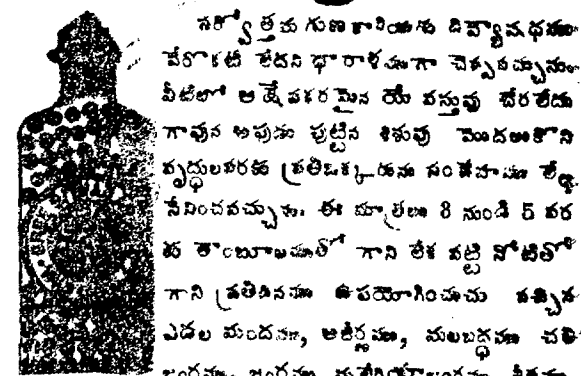 సర్వోత్తమ గుణకారియగు దివ్యౌషధము
వేరొకటి లేదని ధారాళముగా చెప్పవచ్చును
వీటిలో ఆక్షేపకరమైన యే వస్తువు చేరలేదు
గావున అపుడు పుట్టిన శిశువు మొదలుకొని
వృద్ధులవరకు ప్రతిఒక్కరును సందేహము లేక
సేవించవచ్చును. ఈ మాత్రలు 3 నుండి 5 వర
కు తాంబూలముతో గాని లేక వట్టి నోటితో
గాని ప్రతిదినము ఉపయోగించుచు వచ్చిన
ఎడల మందము, అజీర్ణము, మలబద్ధము చలి
జ్వరము, జ్వరము